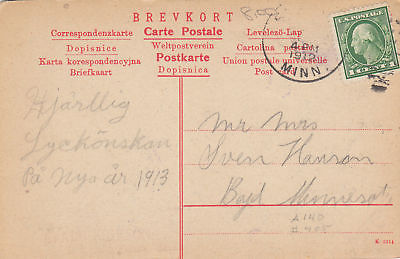 BREVKORT
Correspondenzkarte
Carte Postale
Levelező-Lap
Dopisnice
Weltpostverein
Cartolina postale
Karta korespondencyjna
Postkarte
Union postale universelle
Briefkaart
Dopisnica
Post
4 PM
1912
MINN.
U.S. POSTAGE
Hjärtlig
Lyckönskan
På Nya år 1913
Mr Mrs
Sven Hanson
Boyd Minnesot
A140
#405